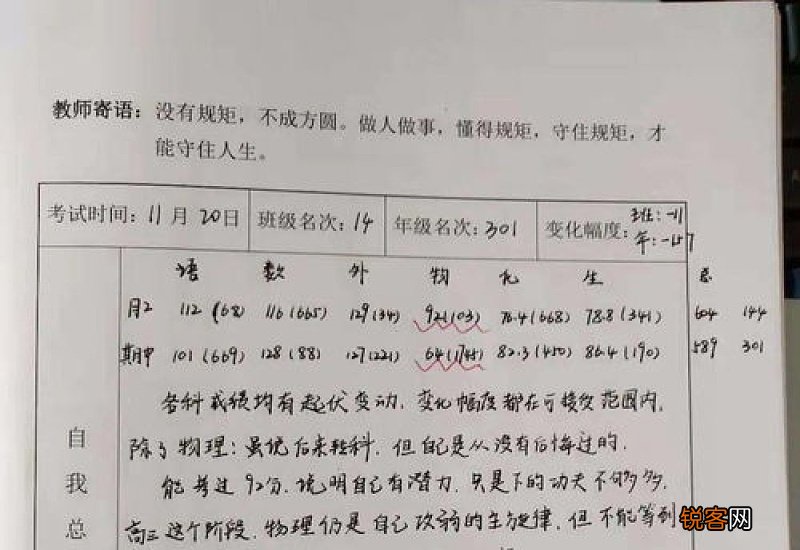 教师寄语：没有规矩，不成方圆。做人做事，懂得规矩，守住规矩，才
能守住人生。
考试时间：11月20日 班级名次：14 年级名次：301 变化幅度：班：-11
年：-157
语 数 外 物 化 生 总
月2 112（68） 116（665） 129（34） 92（103） 78.4（668） 78.8（341） 604 144
期中 101（669） 128（88） 127（221） 64（1745） 82.3（450） 86.4（190） 589 301
各科成绩均有起伏变动，变化幅度都在可接受范围内，
除了物理：虽说后来转科，但自己是从没有后悔过的．
能考过92分，说明自己有潜力，只是下的功夫不够多，
高三这个阶段，物理仍是自己攻弱的主旋律，但不能等到
自
我
总
锐客网